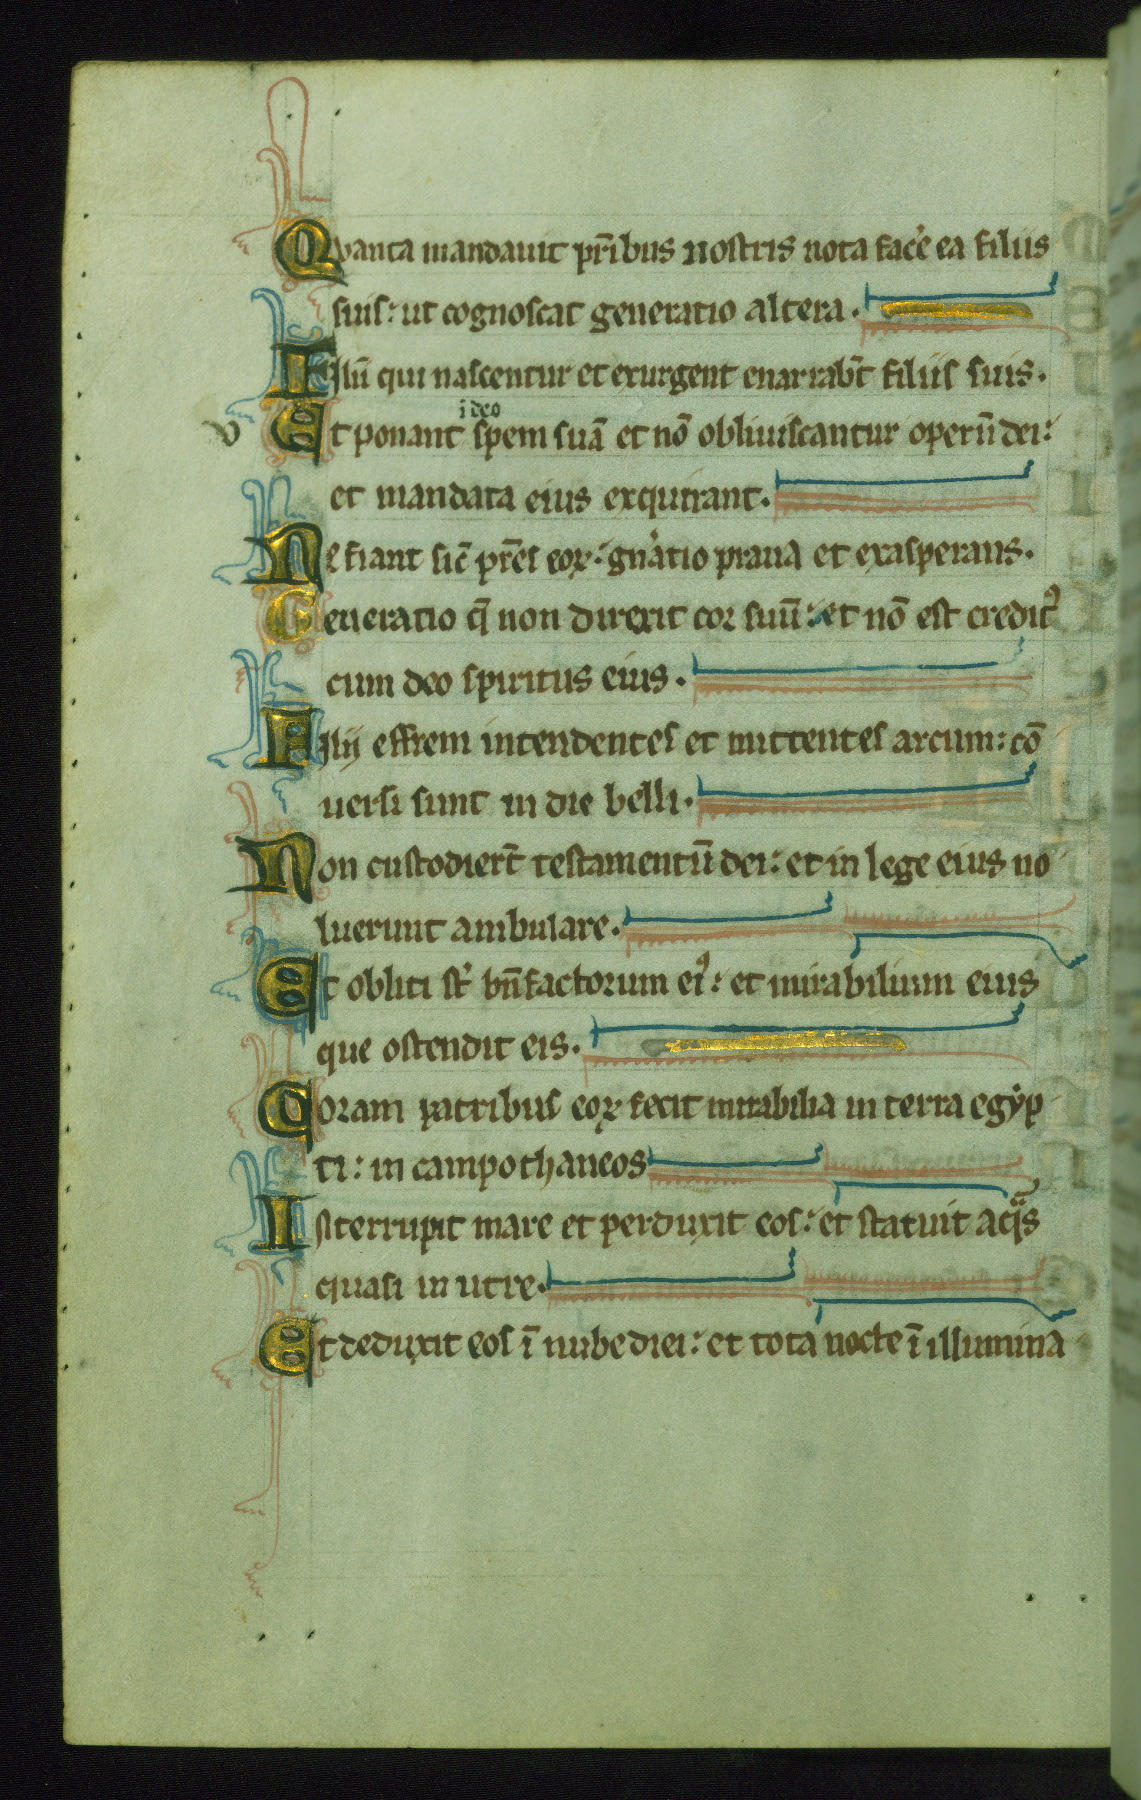 Qvanta mandauit pr̄ibus nostris nota facˀe ea filiis
suis: ut cognoscat generatio altera.
Filii qui nascentur et exurgent enarrab̄t filiis suis.
i deo
v Et ponant spem suā et nō obliuiscantur operū dei:
et mandata eius exquirant.
Ne fiant sic̄ pr̄es eoꝝ: gnˀatio praua et exasperans.
Generatio q̄ non direxit cor suū: et nō est creditꝰ
cum deo spiritus eius.
Filij effrem intendentes et mittentes arcum: cō
uersi sunt in die belli.
Non custodier̄t testamentū dei: et in lege eius no
luerunt ambulare.
Et obliti st̄ bn̄factorum eiꝰ: et mirabilium eius
que ostendit eis.
Coram patribus eoꝝ fecit mirabilia in terra egẏp
ti: in campo thaneos
Interrupit mare et perduxit eos: et statuit aqͣs
quasi in utre.
Et deduxit eos ī nube diei: et tota nocte ī illumina